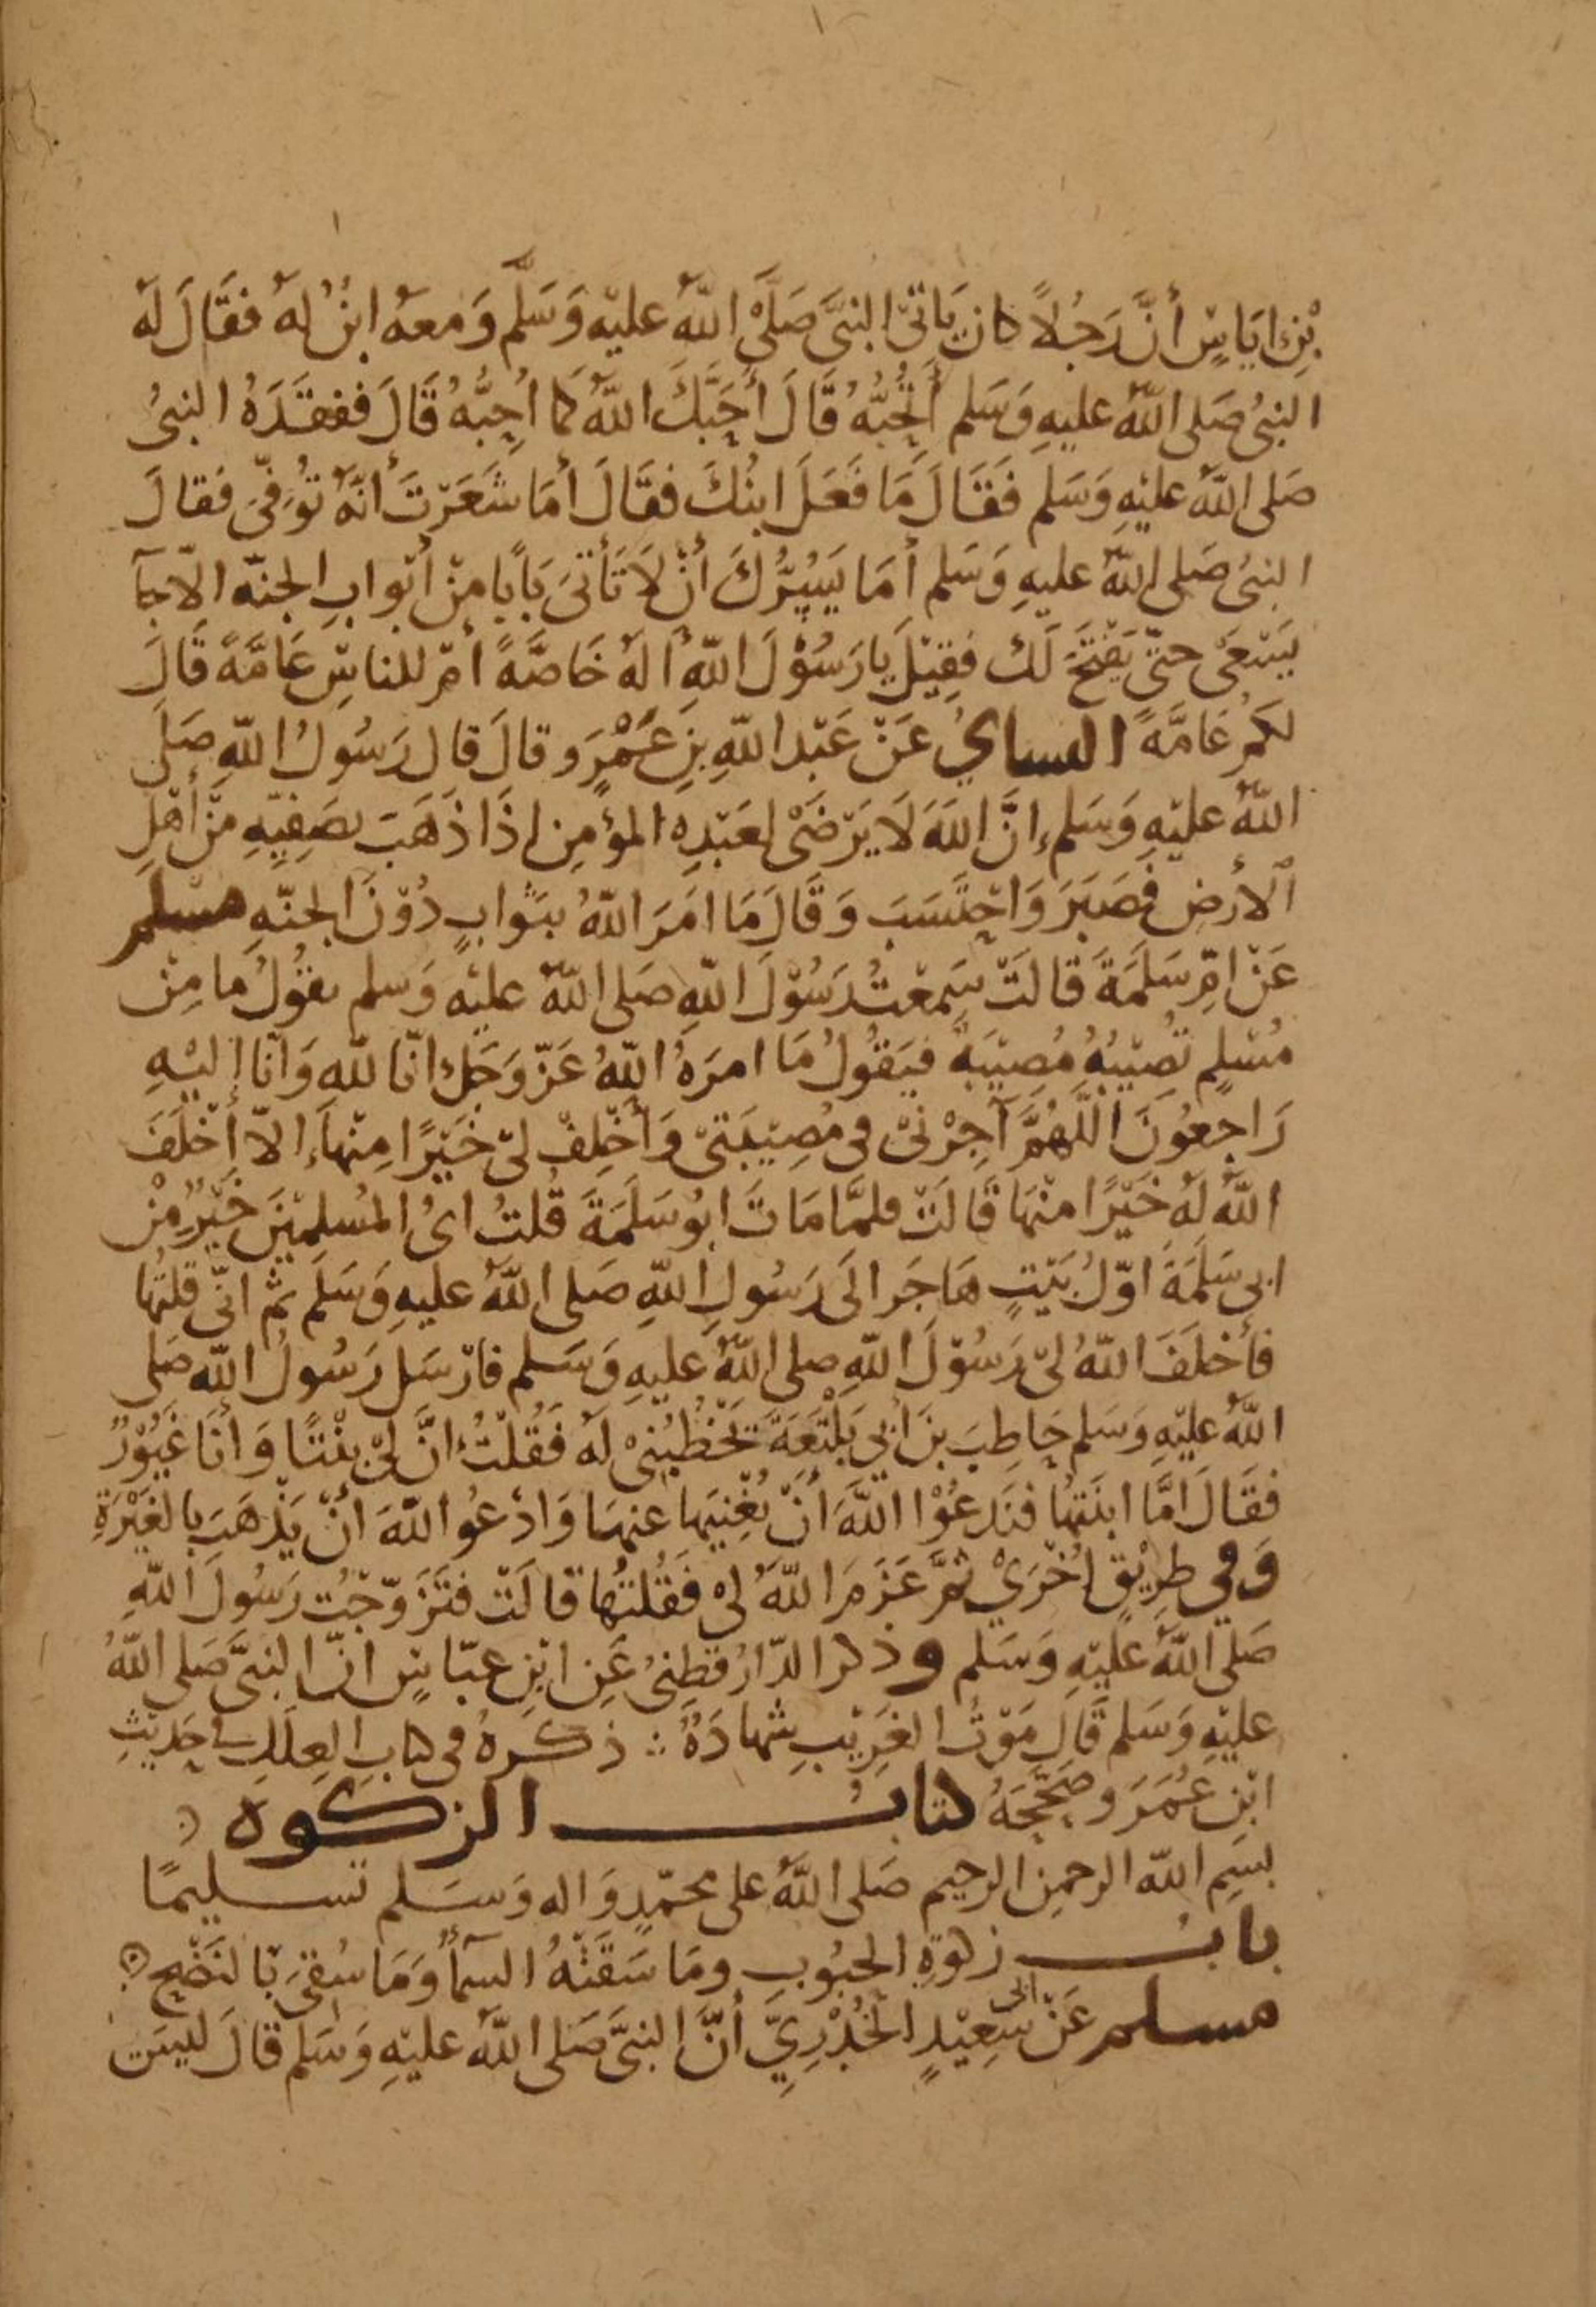 بْنِ اِيَاسٍ أَنَّ رَجُلًا كان يَاتيْ النبيَّ صَلَّى اللّٰهُ عليْهِ وَسَلَّم وَمعهُ ابنٌ لهُ فقَالَ لَهُ
النبيُ صَلى اللّٰهُ عليهِ وَسَلم أَتُحِبُّهُ قَالَ أَحَبَّكَ اللّٰهُ كَما أُحِبُّهُ قَالَ ففقَدَهُ النبيُ
صَلى اللّٰهُ عليْهِ وَسَلم فَقَالَ مَا فَعَلَ ابنُكَ فقَالَ أَمَا شَعَرْتَ أنّهُ تُوُفّيَ فَقالَ
النبيُ صَلى اللّٰهُ عليهِ وَسَلم أمَا يَسُرُّكَ أنْ لَا تَأتيَ بَابًا مِنْ أبْوابِ الجنّه الّا جآ
يَسْعَى حتّى يَفْتَحَ لَك فقِيْلَ يَا رَسُوْلَ اللّٰهِ أَلَهُ خَاصَّةً أمْ للناسِ عَامَّةً قَالَ
لكُم عَامَّةً النسايُ عَنْ عَبْد اللّٰهِ بنِ عَمْرٍو قالَ قال رَسُولُ اللّٰهِ صَلى
اللّٰهُ عليْهِ وَسَلم إنَّ اللّٰهَ لَا يَرْضَى لعَبْدِهِ المؤمِنِ اذَا ذَهَبَ بصَفِيِّهِ مِنْ أَهْلِ
الأرضِ فَصَبَرَ وَاحْتَسَبَ وَقَالَ مَا امَرَ اللّٰهُ بثَوابٍ دُوْنَ الجنّهِ مسلم
عَنْ امِّ سَلَمَةَ قَالَتْ سَمِعْتُ رَسُوْلَ اللّٰهِ صَلى اللّٰهُ عليْهِ وَسلم يقُولُ مَا مِنْ
مُسْلمٍ تُصِيْبُهُ مُصِيْبَةٌ فيَقُولُ مَا امرَهُ اللّٰهُ عَزّ وَجَل انّا للّٰهِ وَانّا إليْهِ
رَاجعُونَ اللّٰهُمَّ آجِرْنيْ في مُصِيْبَتيْ وَأَخْلِفْ ليْ خَيْرًا مِنْهاَ إلّا أَخْلَفَ
اللّٰهُ لَهُ خَيْرًا منْهَا قَالَتْ فلمَّا مَاتَ ابُو سَلَمَةَ قُلتُ ايُ المُسْلمِيْنَ خَيْرٌ مِنْ
ابي سَلَمَةَ اوّلُ بَيْتٍ هَاجَر الَى رَسُولِ اللّٰهِ صَلى اللّٰهُ عليهِ وَسَلَم ثُم انّي قلتُها
فأخْلَفَ اللّٰهُ ليْ رَسُوْلَ اللّٰهِ صلى اللّٰهُ عليهِ وَسَلم فارْسَل رَسُولُ اللّٰهِ صَلى
اللّٰهُ عليْهِ وَسَلم حَاطِبَ بنَ أبي بَلْتَعَةَ يَخْطُبُنيْ لَهُ فَقُلْتُ انَّ ليْ بنْتًا وَأنَا غَيُوْرٌ
فقَالَ امَّا ابنَتُها فنَدعُوْا اللّٰهَ أنْ يُغْنِيَها عنهَا وَادْعُو اللّٰهَ أنْ يَذْهَبَ بالغَيْرَةِ
وَفي طرِيْقٍ أُخْرَيْ ثمَّ عَزَمَ اللّٰهُ ليْ فَقُلتُها قَالَتْ فتَزَوّجْتُ رَسُولَ اللّٰهِ
صَلى اللّٰهُ عَليْهِ وَسَلم وذكر الدّارُقطنيُ عَنِ ابْنِ عبّاسٍ انّ النبيَّ صَلى اللّٰهُ
عليْهِ وَسَلم قَالَ مَوْتُ الغَرِيْبِ شهادَةٌ ؞ ذكَرهُ في كتابِ العِلَلِ في حَدِيْثِ
ابْنِ عُمَرَ وصَحَّحَهُ كتابُ الزكوة
بسْمِ اللّٰه الرحمنِ الرحيم صَلى اللّٰهُ على محمّدٍ وَاله وَسَلم تسليمًا
بابُ زكوةِ الحبُوبِ ومَا سَقَتْهُ السمآءُ وَمَا سُقيَ بالنَضْحِ
مسلم عَنْ ابى سَعِيْدٍ الخُدْرِيِّ أَنَّ النبيَّ صَلى اللّٰهُ عليْهِ وَسَلم قَالَ ليسَ